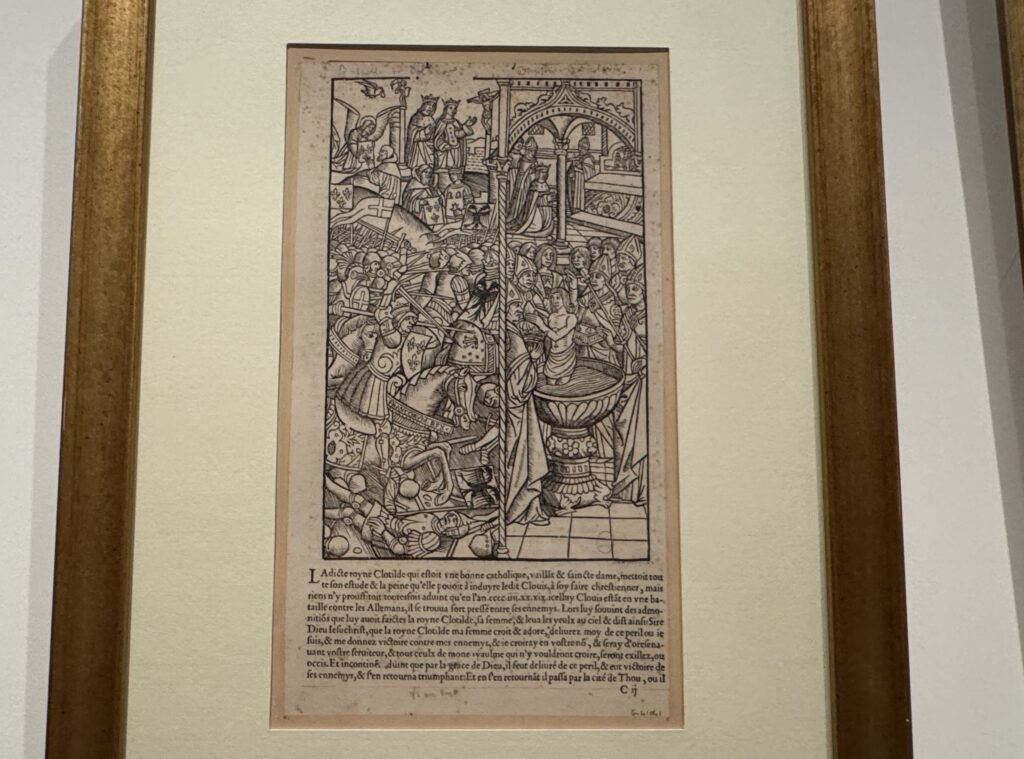 LAdicte royne Clotilde qui estoit vne bonne catholique, vaillãt & saincte dame, mettoit tou
te son estude & la peine qu'elle pouoit à induyre ledit Clouis, à soy faire chrestienner, mais
riens n'y proussitoit toutesfois aduint qu'en l'an. cccc. iiii.xx.xix. icelluy Clouis estãt en vne ba-
taille contre les Allemans, il se trouua fort pressé entre ses ennemys. Lors luy souuint des admo-
nitiõs que luy auoit faictes la royne Clotilde, sa femme, & leua les yeulx au ciel & dist ainsi: Sire
Dieu Iesuchrist, que la royne Clotilde ma femme croit & adore, deliurez moy de ce peril ou ie
suis, & me donnez victoire contre mes ennemys, & ie croiray en vostre nõ, & seray d'oresena-
uant vostre seruiteur, & tous ceulx de mone royaulme qui n'y vouldront croire, seront exillez, ou
occis. Et incontinẽt aduint que par la grace de Dieu, il feut deliuré de ce peril, & eut victoire de
ses ennemys, & s'en retourna triumphant: Et en s'en retournãt il passa par la cité de Thou, ou il
C ij